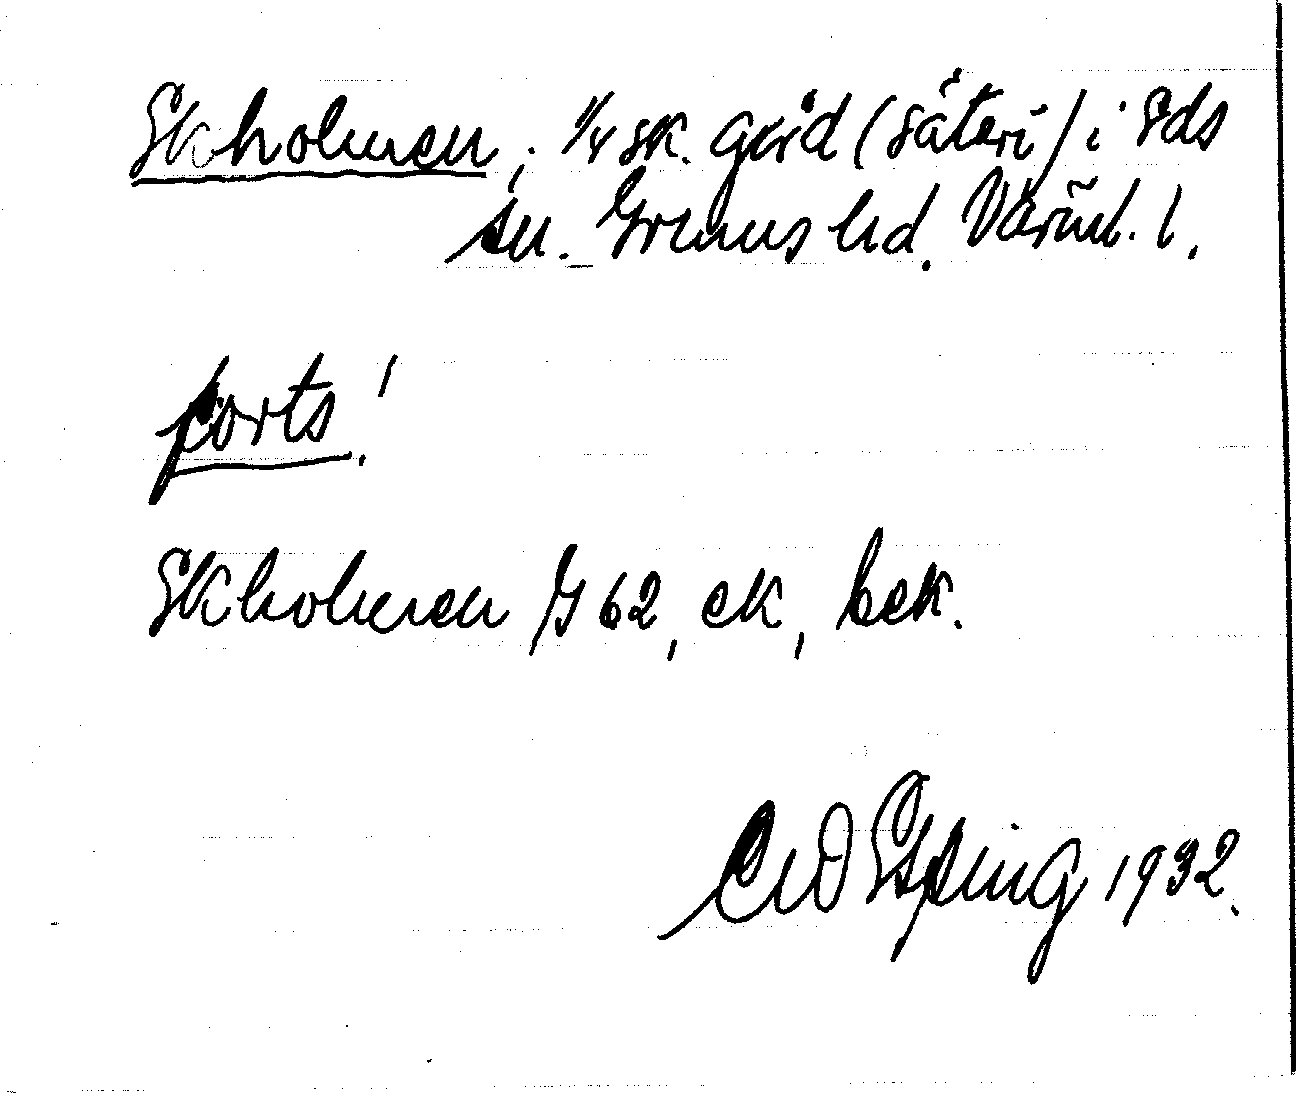 Ekholmen, ¼ sk. gård (säteri) i Eds
sn. Grums hd. Värml. l.
forts!
Ekholmen G 62, ek, bek.
Espling 1932.